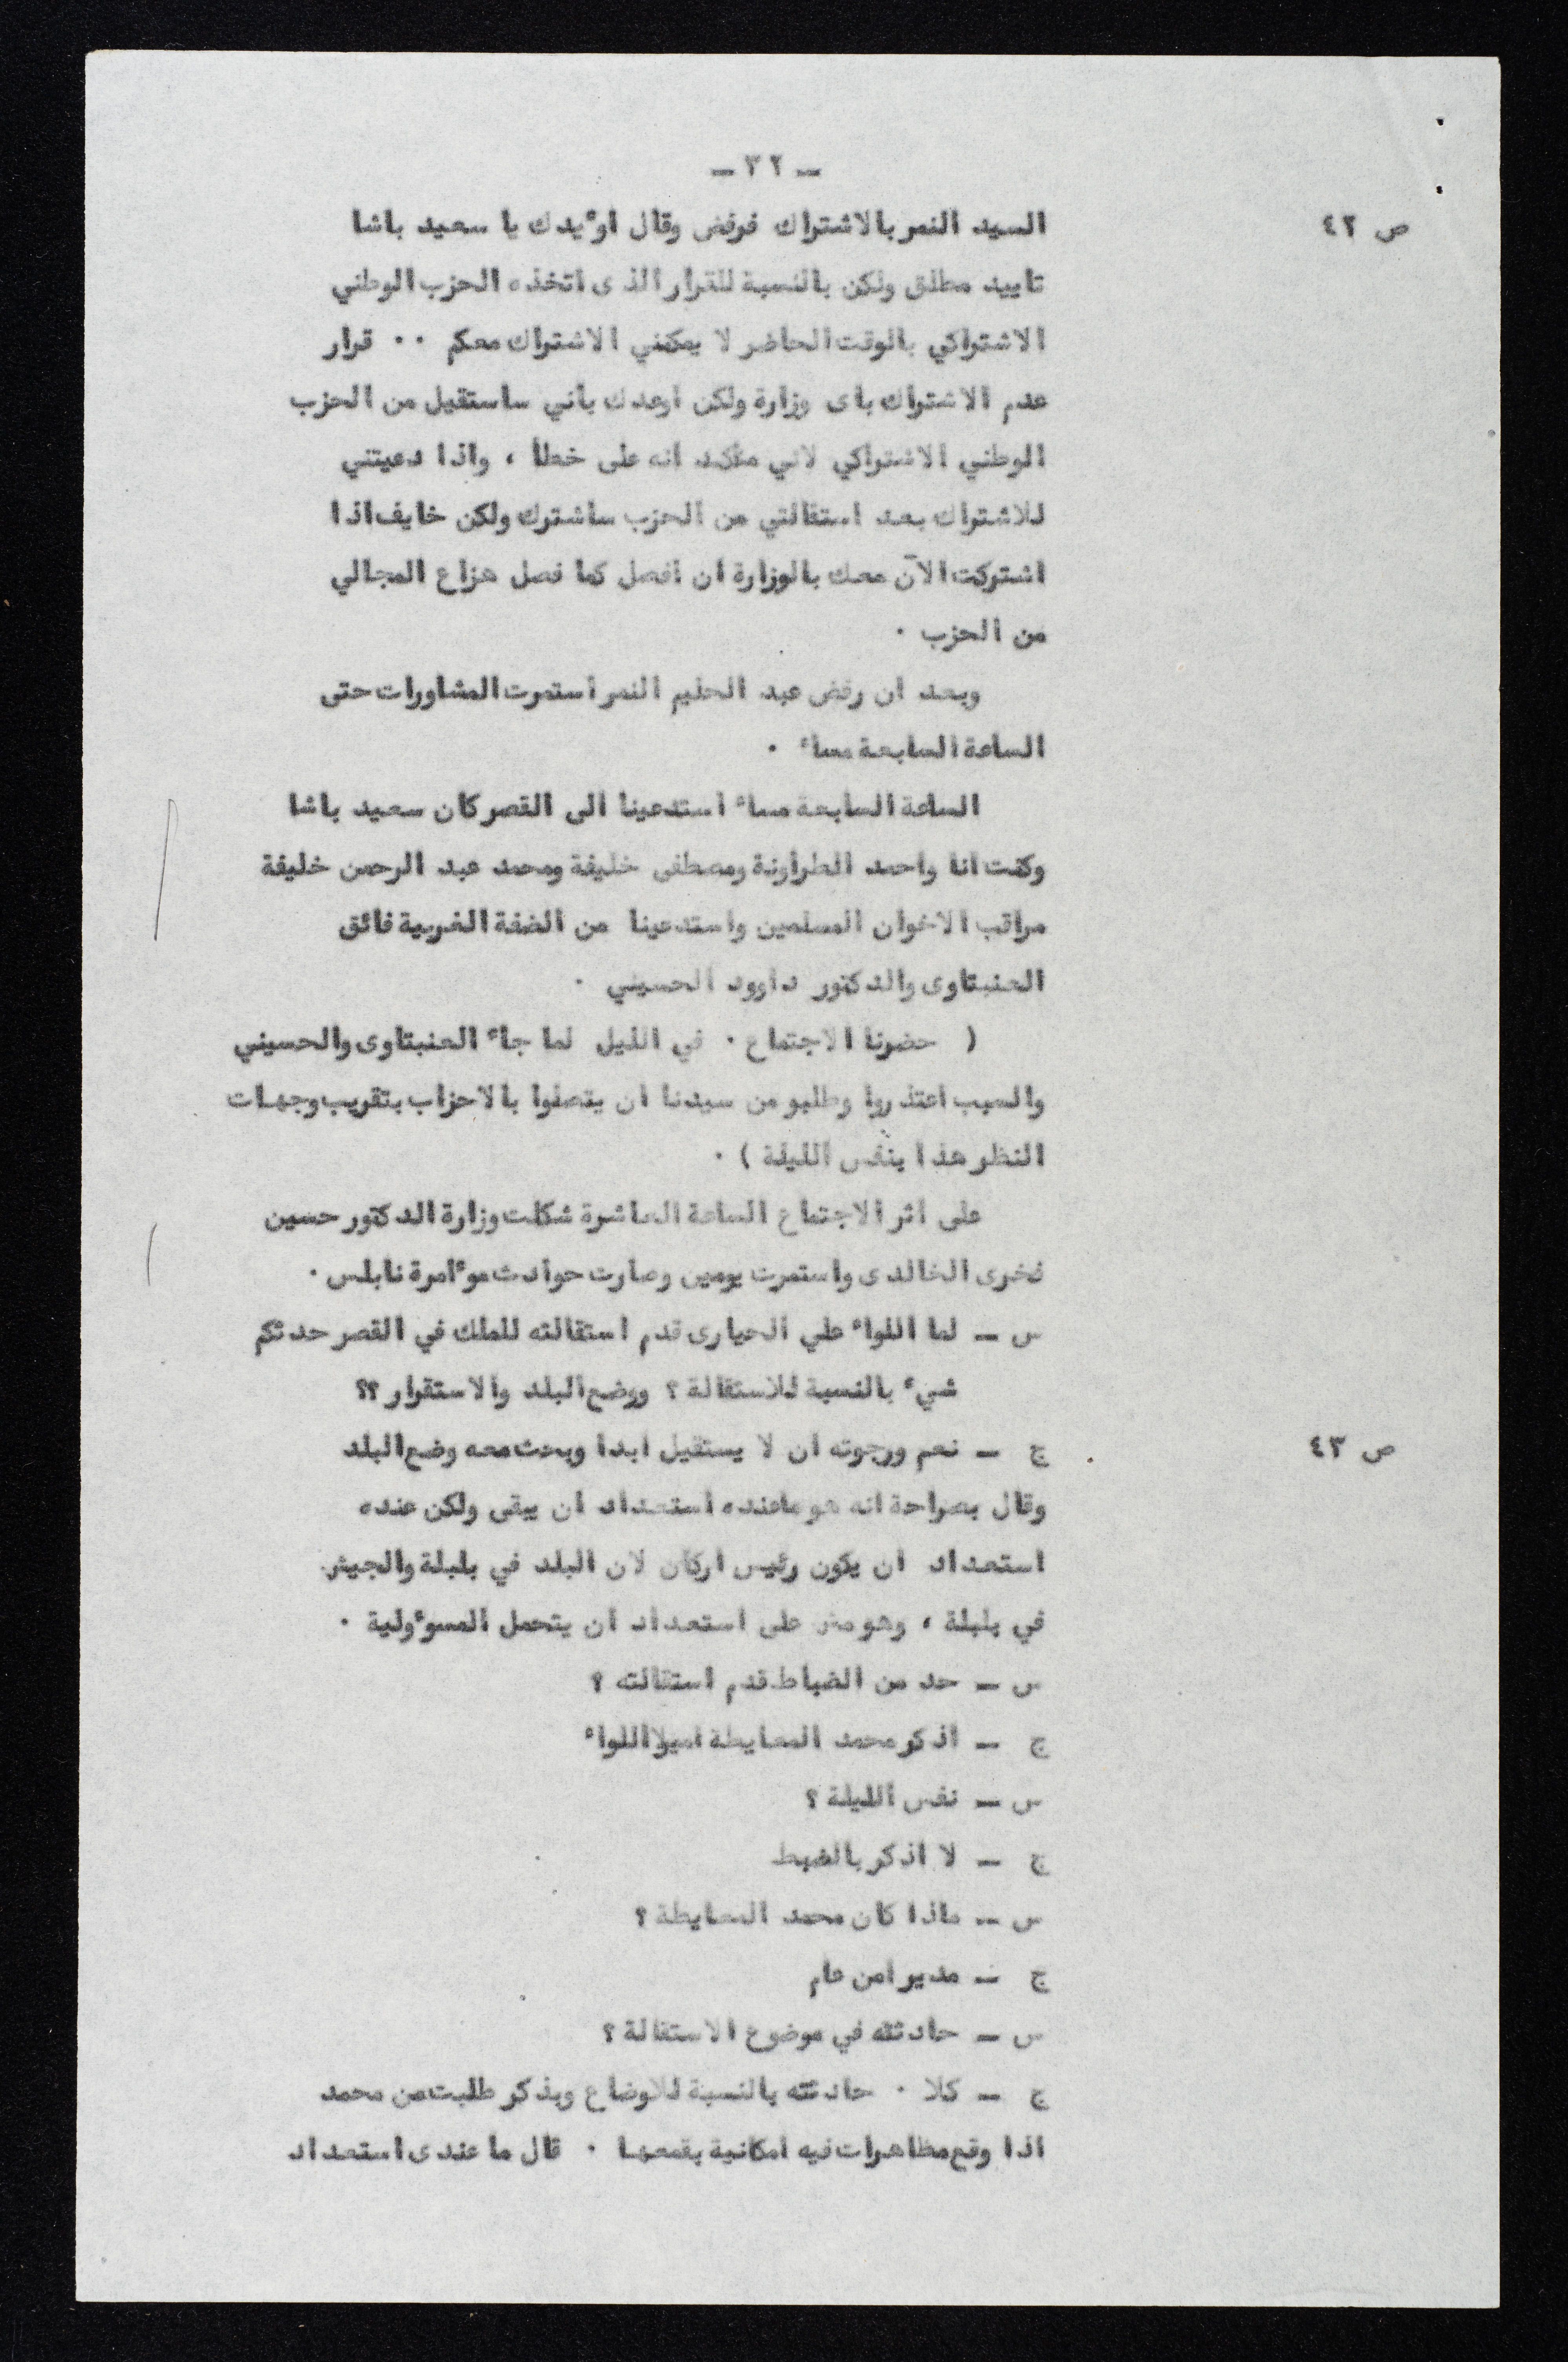 - ٣٢ -
ص ٤٢
السيد النمر بالاشتراك فرفض وقال اوءيدك يا سعيد باشا
تاييد مطلق ولكن بالنسبة للقرار الذى اتخذه الحزب الوطني
الاشتراكي بالوقت الحاضر لا يمكنني الاشتراك معكم ٠٠ قرار
عدم الاشتراك باى وزارة ولكن اوعدك بأني ساستقيل من الحزب
الوطني الاشتراكي لاني متأكد انه على خطأ ، واذا دعيتني
للاشتراك بعد استقالتي من الحزب ساشترك ولكن خايف اذا
اشتركت الآن معك بالوزارة ان افصل كما فصل هزاع المجالي
من الحزب ٠
وبعد ان رفض عبد الحليم النمر استمرت المشاورات حتى
الساعة السابعة مساء ٠
الساعة السابعة مساء استدعينا الى القصر كان سعيد باشا
وكنت انا واحمد الطراونة ومصطفى خليفة ومحمد عبد الرحمن خليفة
مراقب الاخوان المسلمين واستدعينا من الضفة الغربية فائق
العنبتاوى والدكتور داوود الحسيني ٠
( حضرنا الاجتماع ٠ في الليل لما جاء العنبتاوى والحسيني
والسبب اعتذروا وطلبو من سيدنا ان يتصلوا بالاحزاب بتقريب وجهات
النظر هذا بنفس الليلة ) ٠
على اثر الاجتماع الساعة العاشرة شكلت وزارة الدكتور حسين
فخرى الخالدى واستمرت يومين وصارت حوادث موءامرة نابلس ٠
س - لما اللواء علي الحيارى قدم استقالته للملك في القصر حدثكم
شيء بالنسبة للاستقالة ؟ ووضع البلد والاستقرار ؟؟
ص ٤٣
ج - نعم ورجوته ان لا يستقيل ابدا وبحث معه وضع البلد
وقال بصراحة انه هو ما عنده استعداد ان يبقى ولكن عنده
استعداد ان يكون رئيس اركان لان البلد في بلبلة والجيش
في بلبلة ، وهو مش على استعداد ان يتحمل المسوءولية ٠
س - حد من الضباط قدم استقالته ؟
ج - اذكر محمد المعايطة اميرلااللواء
س - نفس الليلة ؟
ج - لا اذكر بالضبط
س - ماذا كان محمد المعايطة ؟
ج - مدير امن عام
س - حادثته في موضوع الاستقالة ؟
ج - كلا ٠ حادثته بالنسبة للاوضاع وبذكر طلبت من محمد
اذا وقع مظاهرات فيه امكانية بقمعها ٠ قال ما عندى استعداد